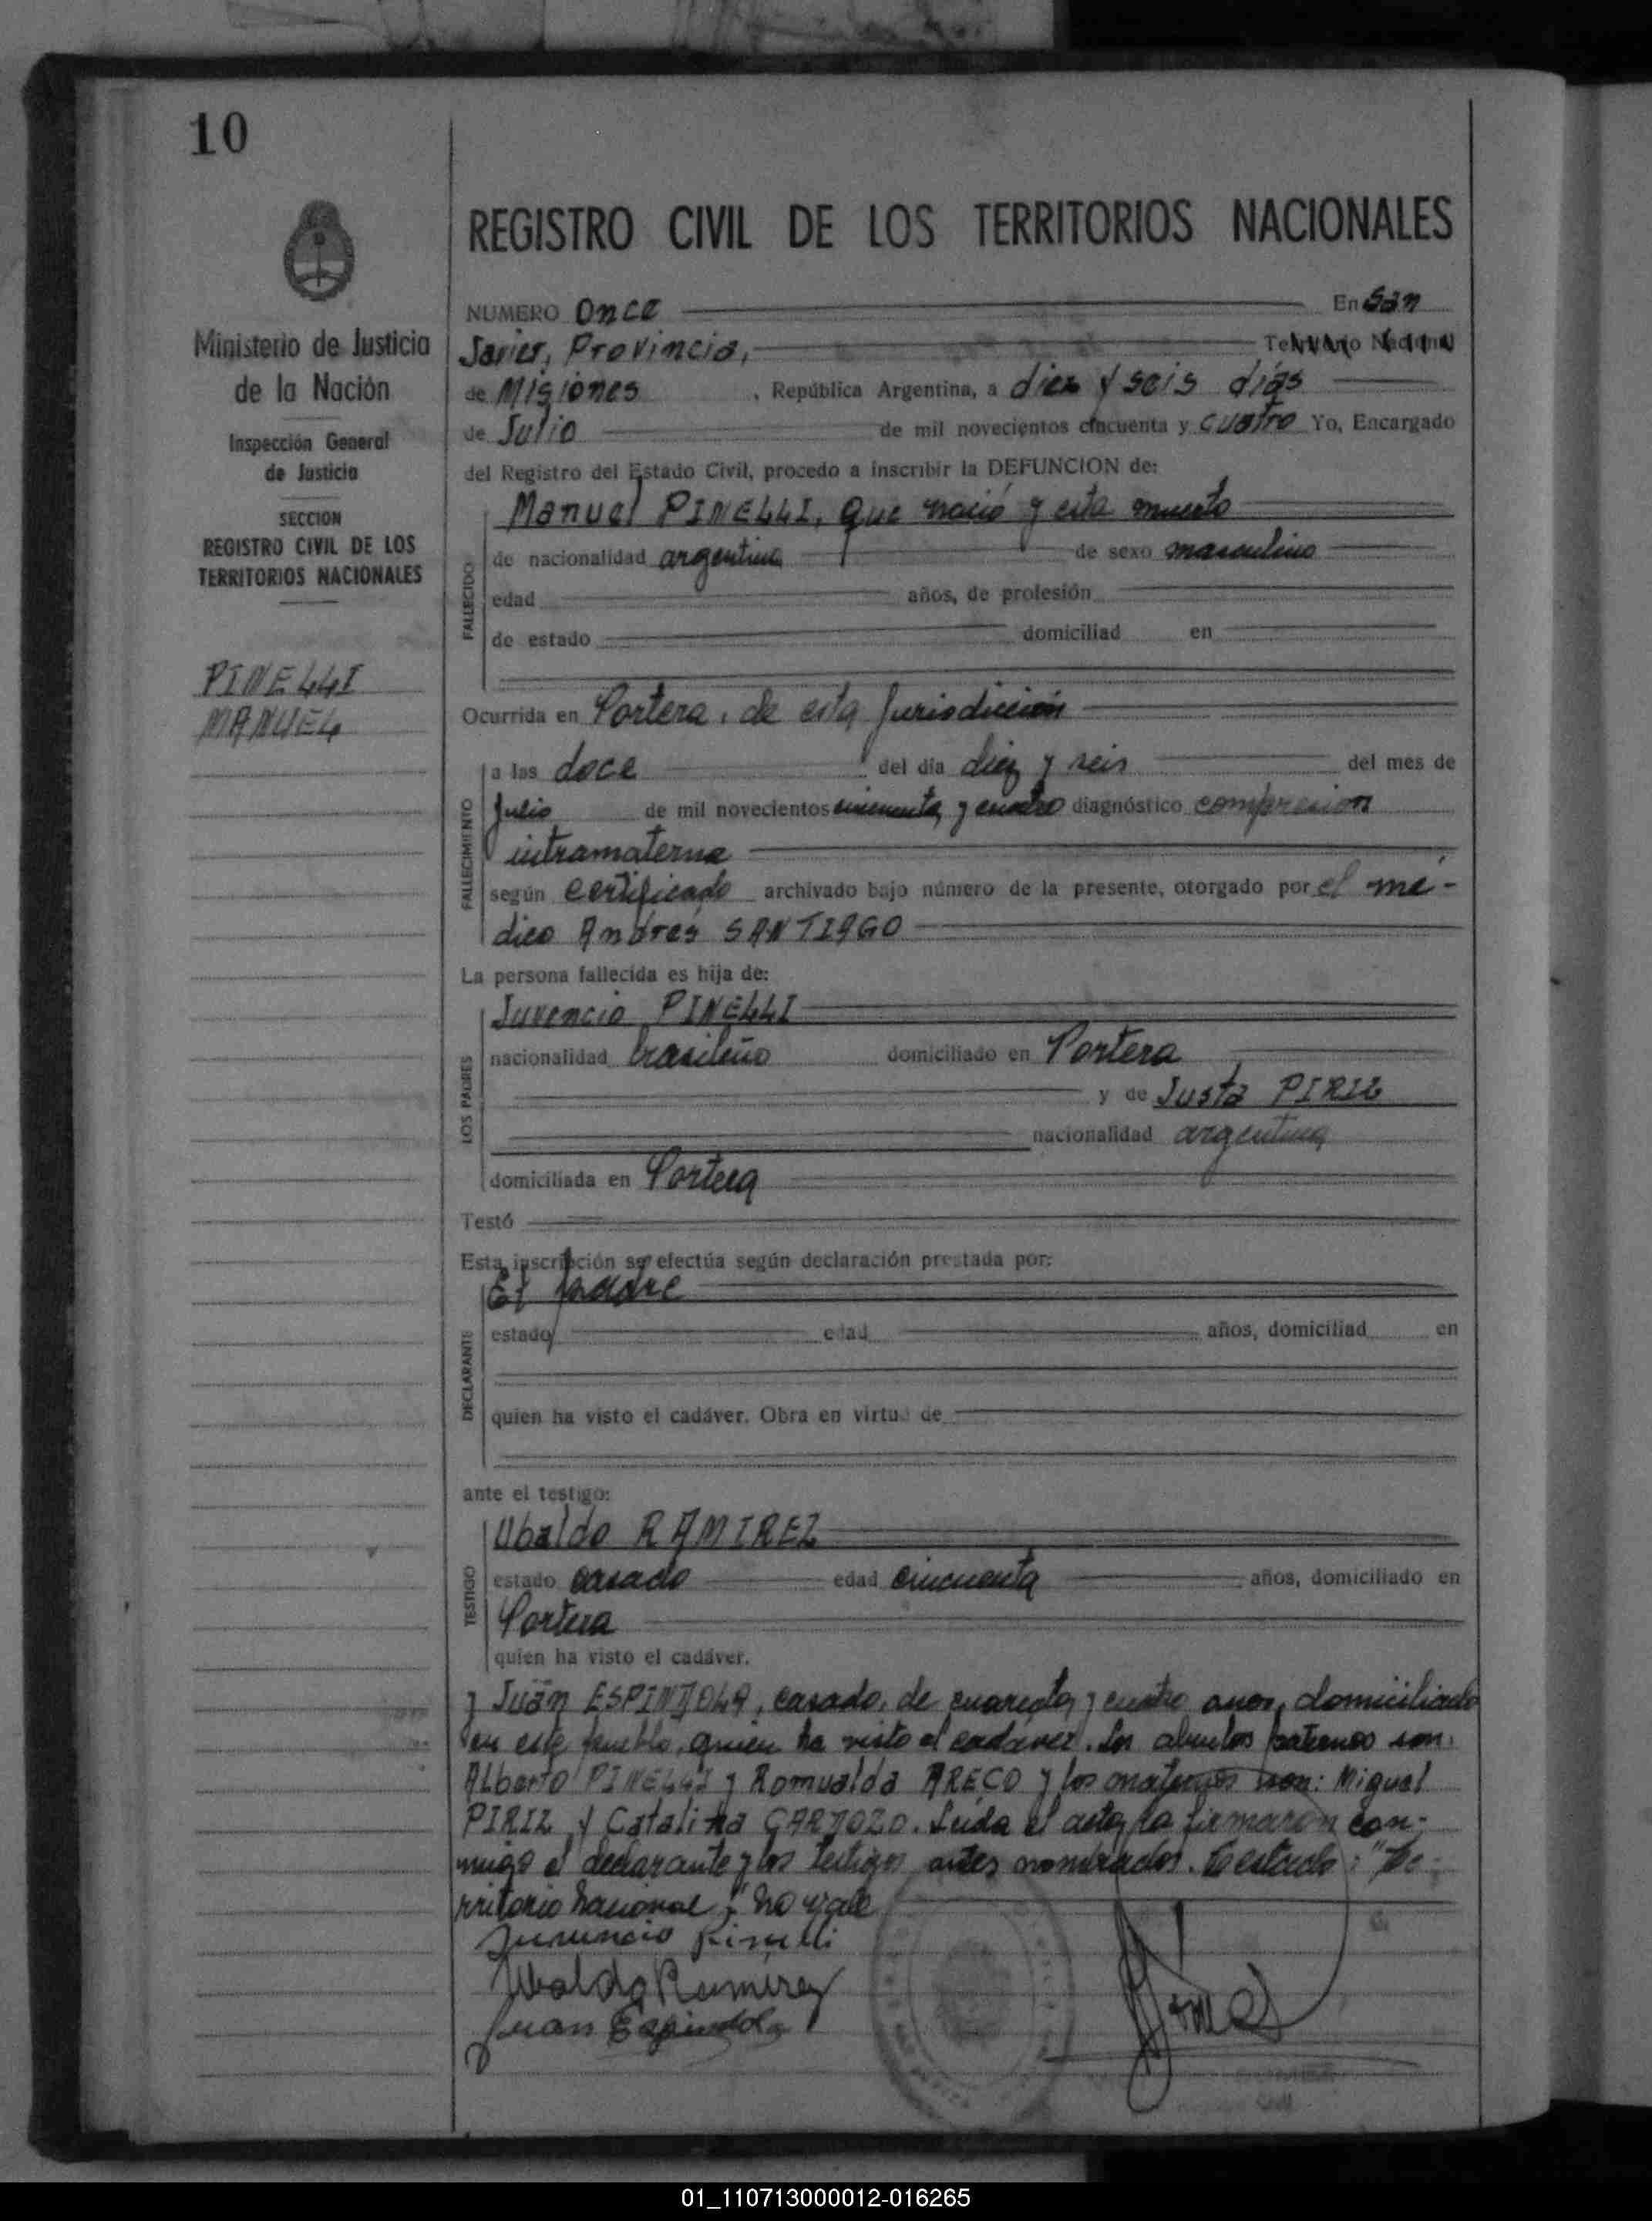 10
Ministerio de Justicia
de la Nación
Inspección General
de Justicia
SECCION
REGISTRO CIVIL DE LOS
TERRITORIOS NACIONALES
PINELLI
MANUEL
REGISTRO CIVIL DE LOS TERRITORIOS NACIONALES
NUMERO Once En San
Javier, Provincia, Territorio Nacional
de Misiones , República Argentina, a diez y seis días
de Julio de mil novecientos cincuenta y cuatro Yo, Encargado
del Registro del Estado Civil, procedo a inscribir la DEFUNCION de:
Manuel PINELLI, que nació y esta muerto
FALLECIDO
de nacionalidad argentina de sexo masculino
edad años, de profesión
de estado domiciliad en
Ocurrida en Portera, de esta Jurisdicción
FALLECIMIENTO
a las doce del día diez y seis del mes de
Julio de mil novecientos cincuenta y cuatro diagnóstico compresion
intramaterna
según certificado archivado bajo número de la presente, otorgado por el mé-
dico Andrés SANTIAGO
La persona fallecida es hija de:
LOS PADRES
Juvencio PINELLI
nacionalidad brasileño domiciliado en Portera
y de Justa PIRIZ
nacionalidad argentina
domiciliada en Portera
Testó
Esta inscripción se efectúa según declaración prestada por:
DECLARANTE
El padre
estado edad años, domiciliad en
quien ha visto el cadáver. Obra en virtud de
ante el testigo:
TESTIGO
Ubaldo RAMIREZ
estado casado edad cincuenta años, domiciliado en
Portera
quien ha visto el cadáver.
y Juan ESPINDOLA, casado, de cuarenta y cuatro anos, domiciliado
en este pueblo, quien ha visto el cadaver. Los abuelos paternos son:
Alberto PINELLI y Romualda ARECO y los maternos son: Miguel
PIRIZ y Catalina CARDOZO. Leida el acta, la firmaron con-
migo el declarante y los testigos antes nombrados. Testado: "Te-
rritorio Nacional", no vale
Juvencio Pinelli
Ubaldo Ramirez
Juan Espindola
01_110713000012-016265